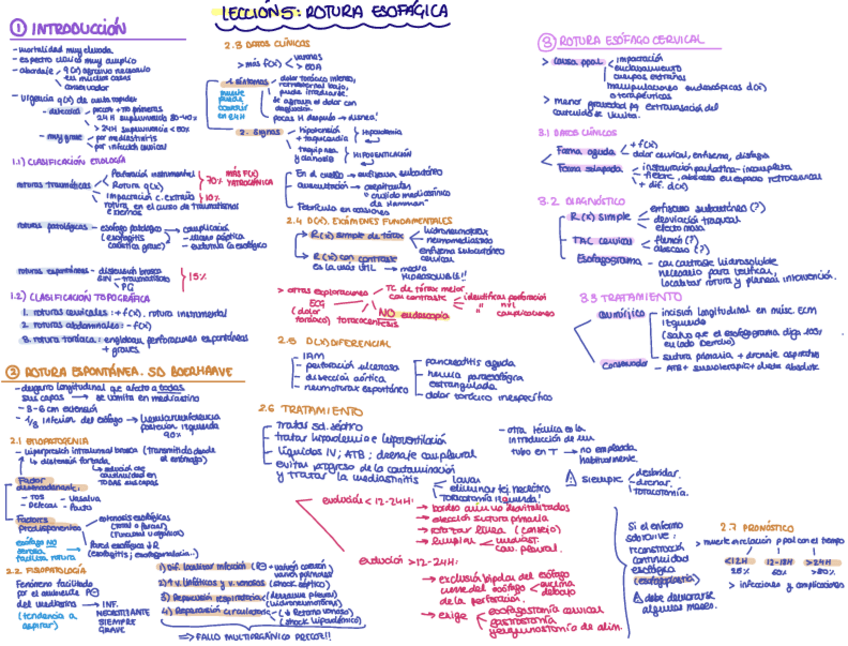 LECCIÓN 5: ROTURA ESOFÁGICA
1 INTRODUCCIÓN
- mortalidad muy elevada
- espectro clínico muy amplio
- abordaje
q(x) agresivo necesario
en muchos casos
conservador
- urgencia q(x) de suma rapidez
- detectar
24H supervivencia 80-90%
> 24H supervivencia < 50%
- muy grave
por mediastinitis
por infección cervical
1.1) CLASIFICACIÓN ETIOLOGÍA
roturas traumáticas
Perforación instrumental
Rotura q(x)
Impactación c. extraño
rotura en el curso de traumatismos
externos
70%
MÁS F(x)
YATROGÉNICA
10%
roturas patológicas - esofago patológico
(esofagitis
cáustica grave)
complicación
- úlcera péptica
roturas espontáneas - distensión brusca
SIN - traumatismo
PG
15%
1.2) CLASIFICACIÓN TOPOGRÁFICA
1. roturas cervicales: + f(x). rotura instrumental
2. roturas abdominales: - f(x)
3. rotura torácica: engloban perforaciones espontáneas
+ graves.
2 ROTURA ESPONTÁNEA. SD BOERHAAVE
- desgarro longitudinal que afecta a todas
sus capas → se vomita en mediastino
- 3-6 cm extensión
- 1/3 inferior del esófago →
posterior izquierda
90%
2.1 ETIOPATOGENIA
- hiperpresión intraluminal brusca (transmitida desde
el estómago)
↳ distensión forzada
solución de
continuidad en
TODAS sus capas
Factor
desencadenante:
- TOS - Valsalva
- Defecar - Parto
Factores
Predisponentes
estenosis esofágicas
(funcional u orgánica)
pared esofágica ↓R
esófago NO
serosa
facilita rotura
2.2 FISIOPATOLOGÍA
Fenómeno facilitado
por el aumento P⊖
del mediastino
(tendencia a
aspirar)
→ INF.
NECROTIZANTE
SIEMPRE
GRAVE
1) Dif. localizar infección
2) + v. linfáticos y v. venosos (shock séptico)
3) Repercusión respiratoria (derrame pleural)
(hidroneumotórax)
4) Repercusión circulatoria (↓ Retorno venoso)
(shock hipovolémico)
⇒ FALLO MULTIORGÁNICO PRECOZ!!
2.3 DATOS CLÍNICOS
> más f(x)
varones
> EDA
1. síntomas
dolor torácico intenso,
retroesternal bajo,
puede irradiarse.
se agrava el dolor con
deglución.
pocas H después → disnea!
muerte
puede
ocurrir
en 24H
2. Signos
hipotensión
+ taquicardia
Hipovolemia
taquipnea
y cianosis
HIPOVENTILACIÓN
En el cuello → enfisema subcutáneo
auscultación
crepitantes
"crujido mediastínico
de Hamman"
2.4 D(x). EXÁMENES FUNDAMENTALES
R(x) simple de tórax
hidroneumotórax
neumomediastino
enfisema subcutáneo
cervical
R(x) con contraste
es la más ÚTIL → medio
HIDROSOLUBLE!!
> otras exploraciones
TC de tórax mejor
con contraste
identificar perforación
" complicaciones
ECG
(dolor
torácico)
toracocentesis
NO endoscopia
2.5 D(x) DIFERENCIAL
- IAM
- perforación ulcerosa
- disección aórtica
- neumotórax espontáneo
pancreatitis aguda
hernia paraesofágica
estrangulada
dolor torácico inespecífico
2.6 TRATAMIENTO
Tratar sd. séptico
tratar hipovolemia e hipoventilación
Líquidos IV; ATB; drenaje cav. pleural
evitar progreso de la contaminación
y tratar la mediastinitis
lavar
eliminar tej. necrótico
Toracotomía izquierda!
- otra técnica es la
introducción de un
tubo en T → no empleada
habitualmente.
⚠ Siempre
desbridar.
drenar.
toracotomía.
evolución < 12-24H:
→ bordes aún no desvitalizados
→ elección sutura primaria
→ limpiar
mediast.
cav. pleural.
evolución > 12-24H:
→ exclusión bipolar del esófago
debajo
de la perforación.
→ exige
esofagostomía cervical
gastrostomía
yeyunostomía de alim.
Si el enfermo
sobrevive:
reconstrucción
continuidad
esofágica
(esofagoplastia)
⚠ debe demorarse
algunos meses.
2.7 PRONÓSTICO
> muerte en relación ppal con el tiempo
<12H
12-18H
>24H
> infecciones y complicaciones
3 ROTURA ESÓFAGO CERVICAL
> causa ppal
impactación
enclavamiento
cuerpos extraños
manipulaciones endoscópicas d(x)
o terapéuticas
> menor gravedad pq extravasación del
contenido se limita.
3.1 DATOS CLÍNICOS
Forma aguda
+ f(x)
dolor cervical, enfisema, disfagia
Forma solapada
instauración paulatina - incompleta
- fiebre, absceso en espacio retroesofág
+ dif. d(x)
3.2 DIAGNÓSTICO
R(x) simple
enfisema subcutáneo (?)
desviación traqueal
efecto masa
TAC cervical
flemón (?)
absceso (?)
Esofagograma - con contraste hidrosoluble
necesario para verificar,
localizar rotura y planear intervención.
3.3 TRATAMIENTO
Quirúrgico
incisión longitudinal en músc. ECM
izquierda
(salvo que el esofagograma diga
en lado derecho)
sutura primaria + drenaje aspirativo
Conservador
- ATB + sueroterapia + dieta absoluta